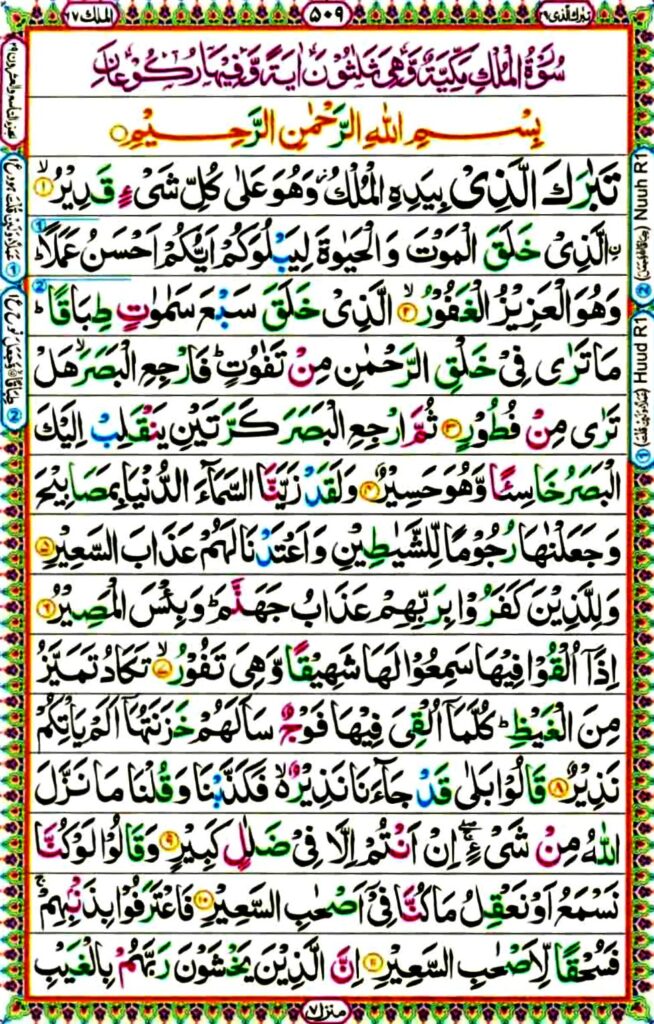 تبٰرك الذی ٢٩
٥٠٩
الملك ٦٧
سُوْرَةُ الْمُلْكِ مَكِّيَّةٌ وَّهِىَ ثَلٰثُوْنَ اٰيَةً وَّفِيْهَا رُكُوْعَانِ
بِسْمِ اللّٰهِ الرَّحْمٰنِ الرَّحِيْمِ
تَبٰرَكَ الَّذِىْ بِيَدِهِ الْمُلْكُ وَهُوَ عَلٰى كُلِّ شَىْءٍ قَدِيْرُ ۙ ۱
۟الَّذِىْ خَلَقَ الْمَوْتَ وَالْحَيٰوةَ لِيَبْلُوَكُمْ اَيُّكُمْ اَحْسَنُ عَمَلًا ؕ
وَهُوَ الْعَزِيْزُ الْغَفُوْرُ ۙ ۲ الَّذِىْ خَلَقَ سَبْعَ سَمٰوٰتٍ طِبَاقًا ؕ
مَا تَرٰى فِىْ خَلْقِ الرَّحْمٰنِ مِنْ تَفٰوُتٍ ؕ فَارْجِعِ الْبَصَرَ ۙ هَلْ
تَرٰى مِنْ فُطُوْرٍ ۳ ثُمَّ ارْجِعِ الْبَصَرَ كَرَّتَيْنِ يَنْقَلِبْ اِلَيْكَ
الْبَصَرُ خَاسِئًا وَّهُوَ حَسِيْرٌ ۴ وَلَقَدْ زَيَّنَّا السَّمَآءَ الدُّنْيَا بِمَصَابِيْحَ
وَجَعَلْنٰهَا رُجُوْمًا لِّلشَّيٰطِيْنِ وَاَعْتَدْنَا لَهُمْ عَذَابَ السَّعِيْرِ ۵
وَلِلَّذِيْنَ كَفَرُوْا بِرَبِّهِمْ عَذَابُ جَهَنَّمَ ؕ وَبِئْسَ الْمَصِيْرُ ۶
اِذَاۤ اُلْقُوْا فِيْهَا سَمِعُوْا لَهَا شَهِيْقًا وَّهِىَ تَفُوْرُ ۙ ۷ تَكَادُ تَمَيَّزُ
مِنَ الْغَيْظِ ؕ كُلَّمَاۤ اُلْقِىَ فِيْهَا فَوْجٌ سَاَلَهُمْ خَزَنَتُهَاۤ اَلَمْ يَاْتِكُمْ
نَذِيْرٌ ۸ قَالُوْا بَلٰى قَدْ جَآءَنَا نَذِيْرٌ ۙ فَكَذَّبْنَا وَقُلْنَا مَا نَزَّلَ
اللّٰهُ مِنْ شَىْءٍ ۚۖ اِنْ اَنْتُمْ اِلَّا فِىْ ضَلٰلٍ كَبِيْرٍ ۹ وَقَالُوْا لَوْ كُنَّا
نَسْمَعُ اَوْ نَعْقِلُ مَا كُنَّا فِىْۤ اَصْحٰبِ السَّعِيْرِ ۱۰ فَاعْتَرَفُوْا بِذَنْۢبِهِمْ ۚ
فَسُحْقًا لِّاَصْحٰبِ السَّعِيْرِ ۱۱ اِنَّ الَّذِيْنَ يَخْشَوْنَ رَبَّهُمْ بِالْغَيْبِ
منزل ٧
Nuuh R1
Huud R1